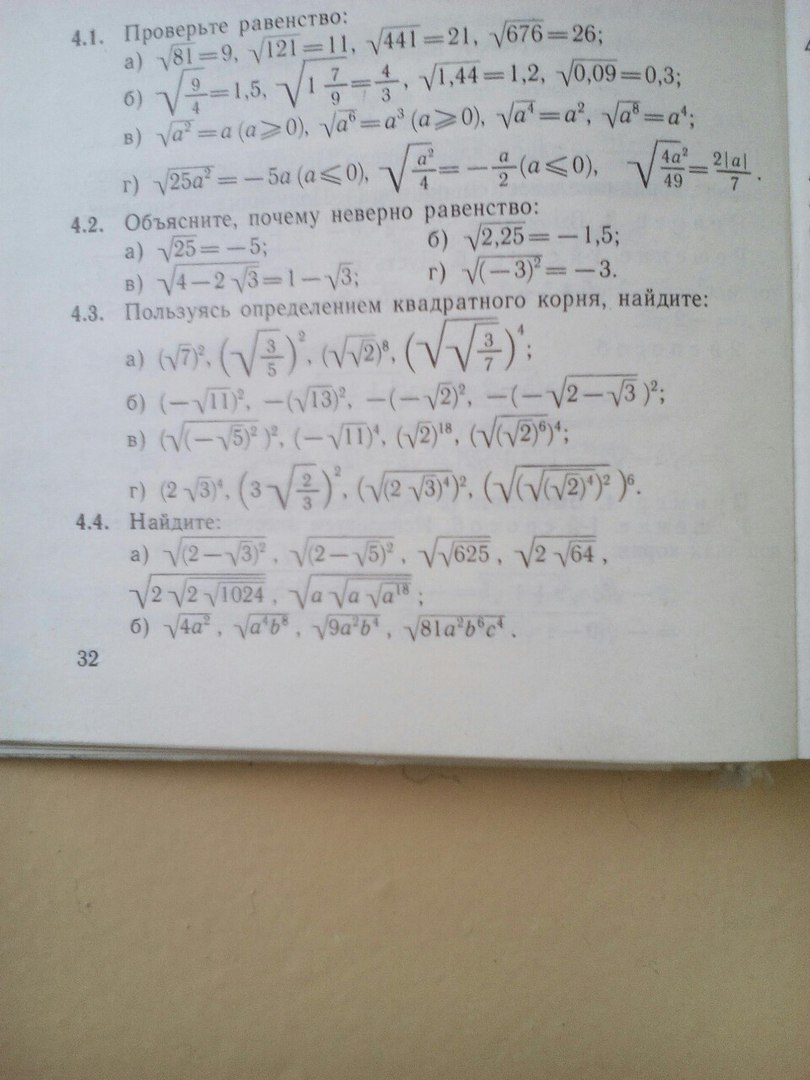 4.1. Проверьте равенство:
а) √81=9, √121=11, √441=21, √676=26;
б) √(9/4)=1,5, √(1 7/9)=4/3, √1,44=1,2, √0,09=0,3;
в) √a²=a (a⩾0), √a⁶=a³ (a⩾0), √a⁴=a², √a⁸=a⁴;
г) √(25a²)=−5a (a⩽0), √(a²/4)=−a/2 (a⩽0), √(4a²/49)=2|a|/7.
4.2. Объясните, почему неверно равенство:
а) √25=−5; б) √2,25=−1,5;
в) √(4−2√3)=1−√3; г) √((−3)²)=−3.
4.3. Пользуясь определением квадратного корня, найдите:
а) (√7)², (√(3/5))², (√√2)⁸, (√√(3/7))⁴;
б) (−√11)², −(√13)², −(−√2)², −(−√(2−√3))²;
в) (√((−√5)²))², (−√11)⁴, (√2)¹⁸, (√((√2)⁶))⁴;
г) (2√3)⁴, (3√(2/3))², (√((2√3)⁴))², (√((√((√2)⁴))²))⁶.
4.4. Найдите:
а) √((2−√3)²), √((2−√5)²), √√625, √(2√64),
√(2√(2√1024)), √(a√(a√a¹⁸));
б) √(4a²), √(a⁴b⁸), √(9a²b⁴), √(81a²b⁶c⁴).
32